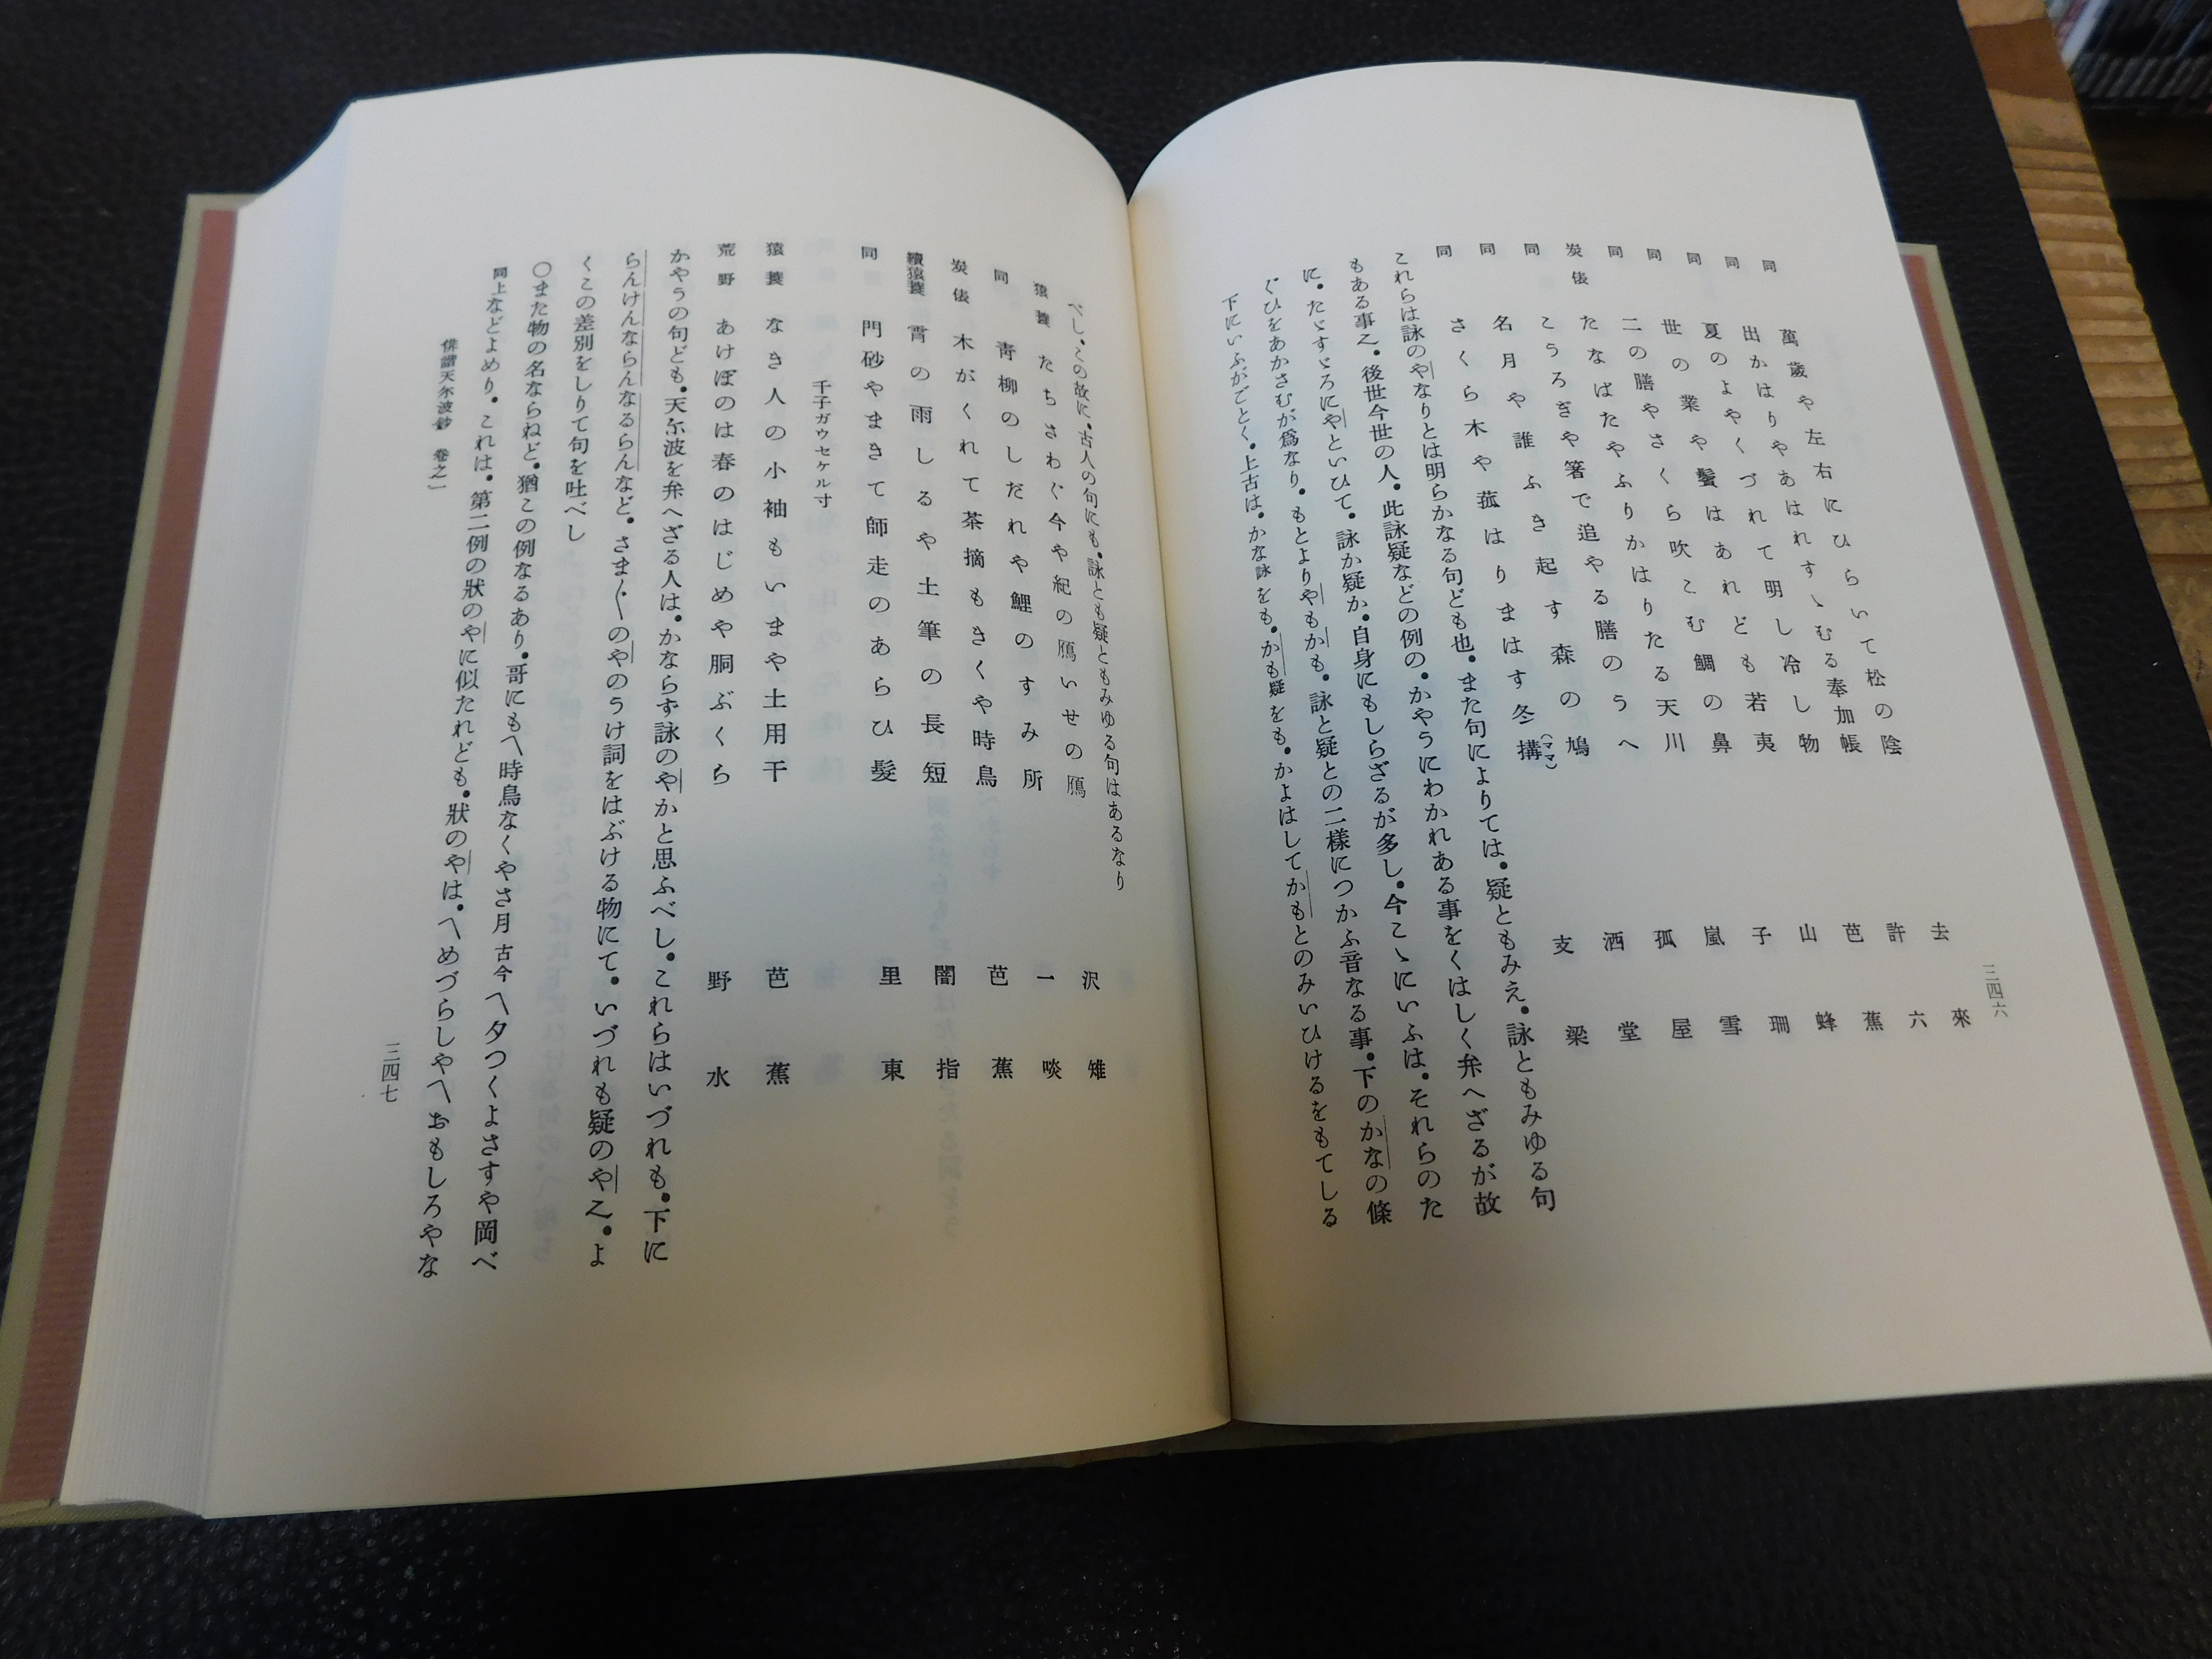 三四六
同 萬歲や左右にひらいて松の陰 去來
同 出かはりやあはれすゝむる奉加帳 許六
同 夏のよやくづれて明し冷し物 芭蕉
同 世の業や髪はあれども若夷 山蜂
同 二の膳やさくら吹こむ鯛の鼻 子珊
同 たなばたやふりかはりたる天川 嵐雪
炭俵 こうろぎや箸で追やる膳のうへ 孤屋
同 名月や誰ふき起す森の鳩 洒堂
同 さくら木や菰はりまはす冬搆(ママ) 支梁
これらは詠のやなりとは明らかなる句ども也。また句によりては。疑ともみえ。詠ともみゆる句
もある事之。後世今世の人。此詠疑などの例の。かやうにわかれある事をくはしく弁へざるが故
に。たゞすゞろにやといひて。詠か疑か。自身にもしらざるが多し。今こゝにいふは。それらのた
ぐひをあかさむが爲なり。もとよりやもかも。詠と疑との二樣につかふ音なる事。下のかなの條
下にいふがごとく。上古は。かな詠をも。かも疑をも。かよはしてかもとのみいひけるをもてしる
べし。この故に。古人の句にも。詠とも疑ともみゆる句はあるなり
猿蓑 たちさわぐ今や紀の鴈いせの鴈 沢雉
同 靑柳のしだれや鯉のすみ所 一啖
炭俵 木がくれて茶摘もきくや時鳥 芭蕉
續猿蓑 宵の雨しるや土筆の長短 闇指
同 門砂やまきて師走のあらひ髮 里東
千子ガウセケル寸
猿蓑 なき人の小袖もいまや土用干 芭蕉
荒野 あけぼのは春のはじめや胴ぶくら 野水
かやうの句ども。天尓波を弁へざる人は。かならず詠のやかと思ふべし。これらはいづれも。下に
らんけんならんなるらんなど。さま〲のやのうけ詞をはぶける物にて。いづれも疑のや之。よ
くこの差別をしりて句を吐べし
○また物の名ならねど。猶この例なるあり。哥にも〽時鳥なくやさ月古今〽夕つくよさすや岡べ
同上などよめり。これは。第二例の狀のやに似たれども。狀のやは。〽めづらしや〽おもしろやな
俳諧天尓波鈔 卷之一
三四七